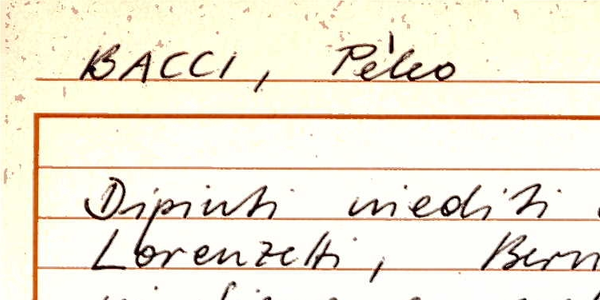 BACCI, Pèleo
Dipinti inediti
Lorenzetti, Bern